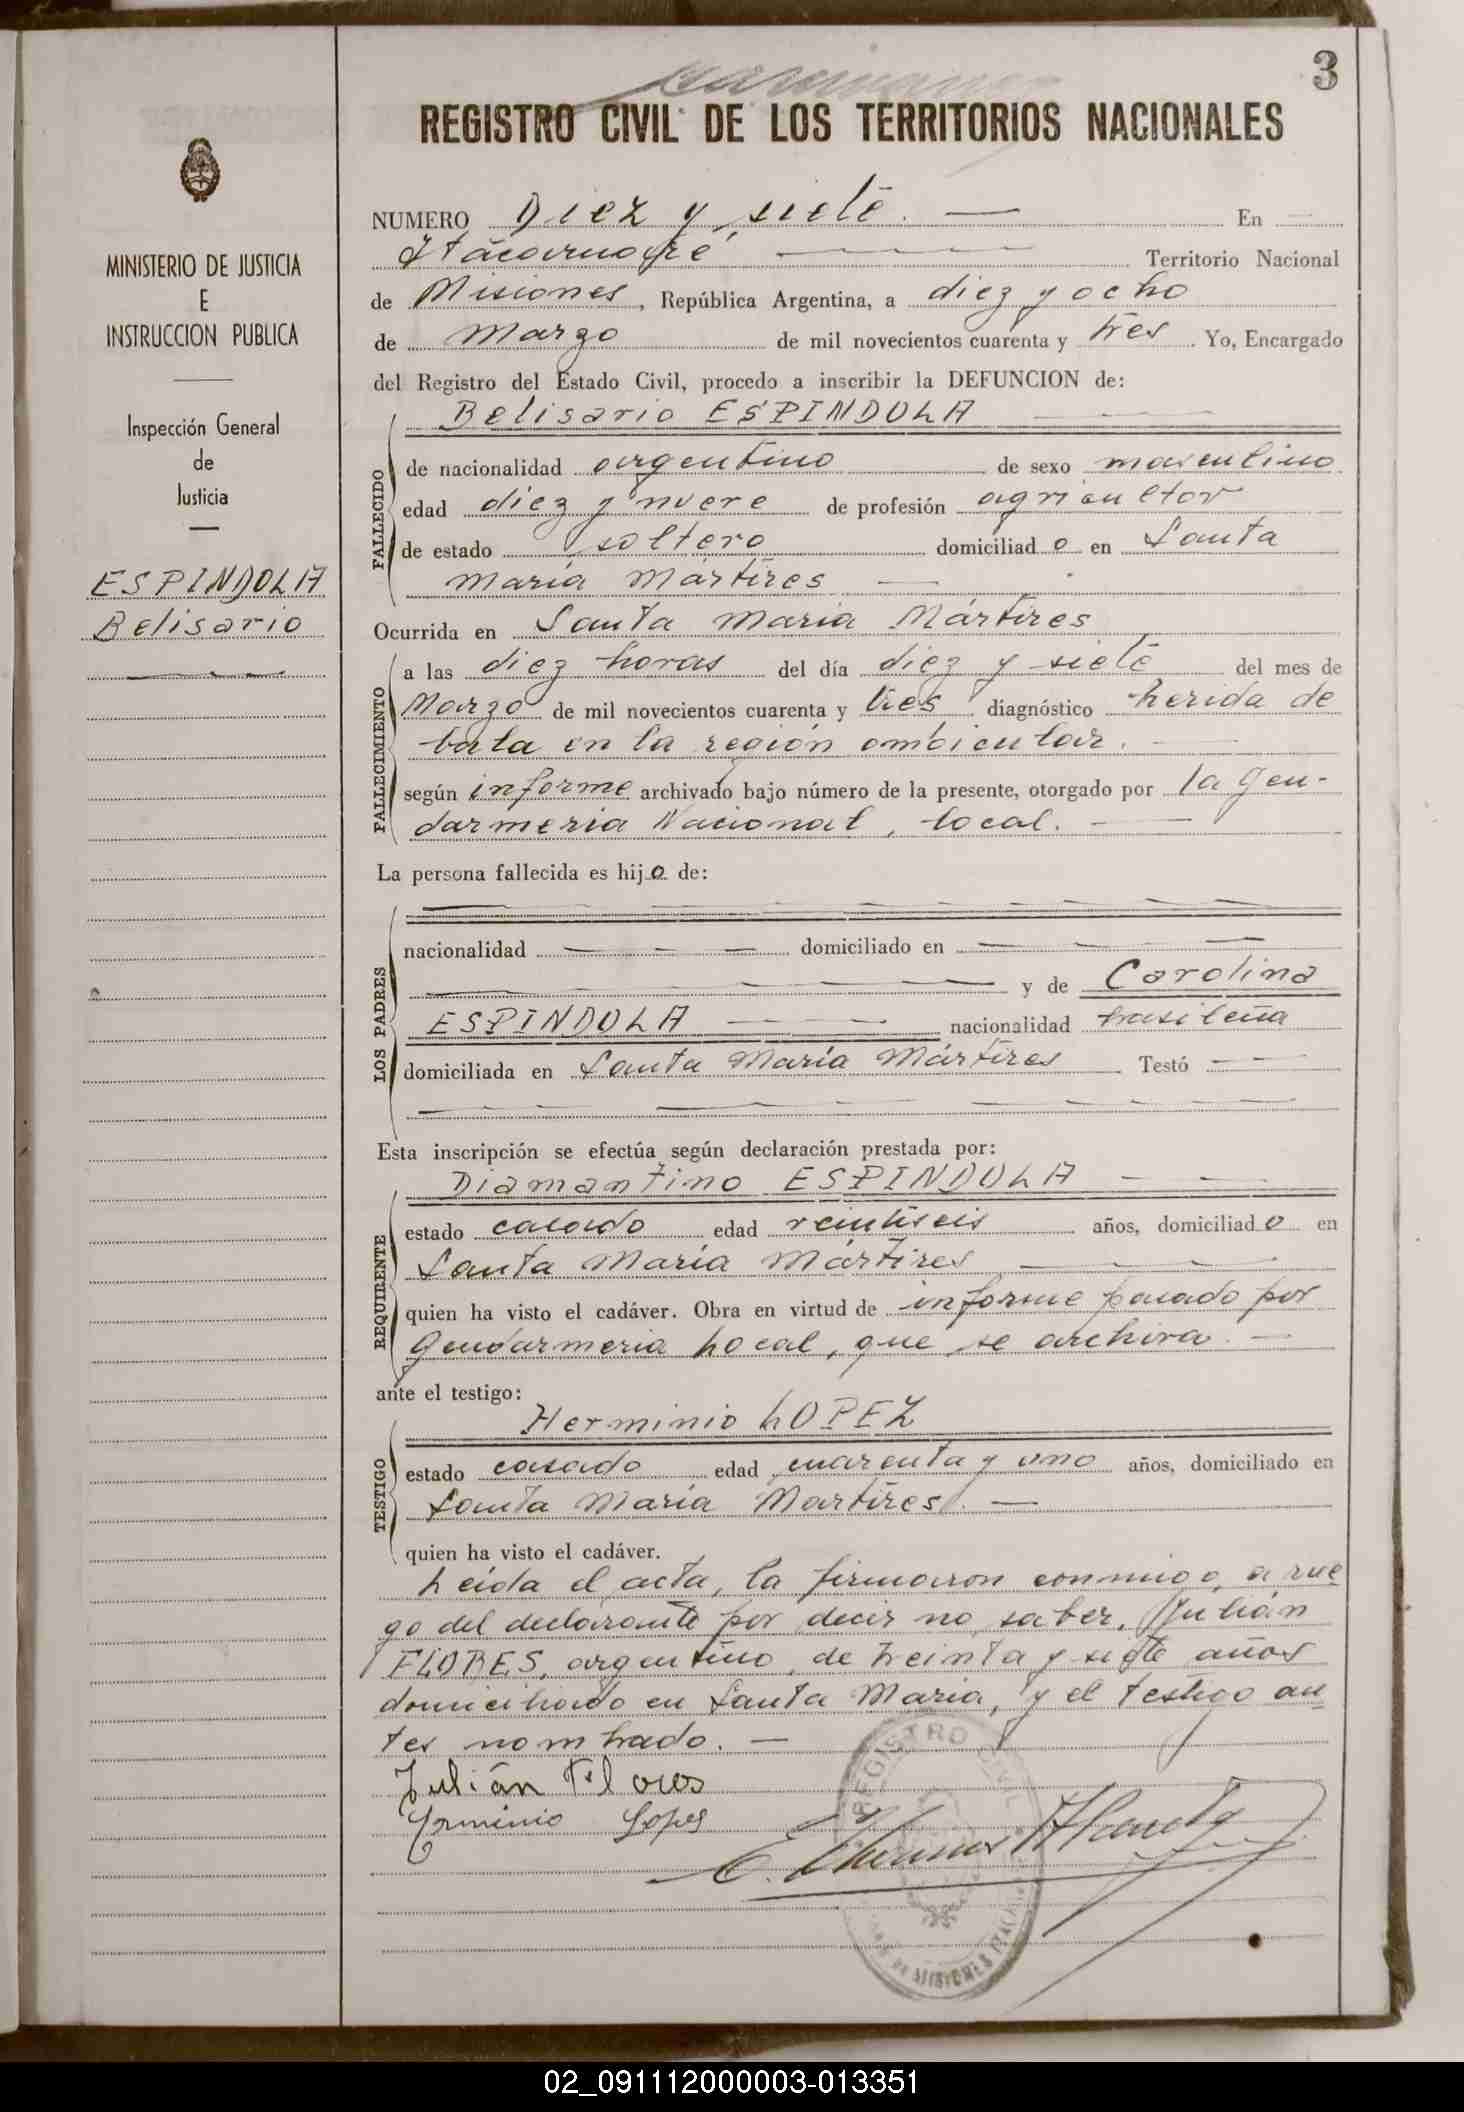 3
REGISTRO CIVIL DE LOS TERRITORIOS NACIONALES
MINISTERIO DE JUSTICIA
E
INSTRUCCION PUBLICA
Inspección General
de
Justicia
ESPINDOLA
Belisario
NUMERO Diez y siete. En
Itacaruaré Territorio Nacional
de Misiones, República Argentina, a diez y ocho
de Marzo de mil novecientos cuarenta y tres. Yo, Encargado
del Registro del Estado Civil, procedo a inscribir la DEFUNCION de:
Belisario ESPINDOLA
FALLECIDO
de nacionalidad argentino de sexo masculino
edad diez y nueve de profesión agricultor
de estado soltero domiciliado en Santa
María Mártires
Ocurrida en Santa María Mártires
FALLECIMIENTO
a las diez horas del día diez y siete del mes de
Marzo de mil novecientos cuarenta y tres diagnóstico herida de
bala en la región ombicular.
según informe archivado bajo número de la presente, otorgado por la Gen-
darmeria Nacional, local.
La persona fallecida es hijo de:
LOS PADRES
nacionalidad domiciliado en
y de Carolina
ESPINDOLA nacionalidad brasileña
domiciliada en Santa María Mártires Testó
Esta inscripción se efectúa según declaración prestada por:
Diamantino ESPINDOLA
REQUIRENTE
estado casado edad veintiseis años, domiciliado en
Santa María Mártires
quien ha visto el cadáver. Obra en virtud de informe pasado por
Gendarmeria Local, que se archiva.
ante el testigo:
Herminio LOPEZ
TESTIGO
estado casado edad cuarenta y uno años, domiciliado en
Santa María Martires.
quien ha visto el cadáver.
Leida el acta, la firmaron conmigo, a rue
go del declarante por decir no saber, Julián
FLORES, argentino, de treinta y siete años
domiciliado en Santa María, y el testigo an
tes nombrado.
Julián Flores
Erminio Lopes
REGISTRO CIVIL
MISIONES
02_091112000003-013351